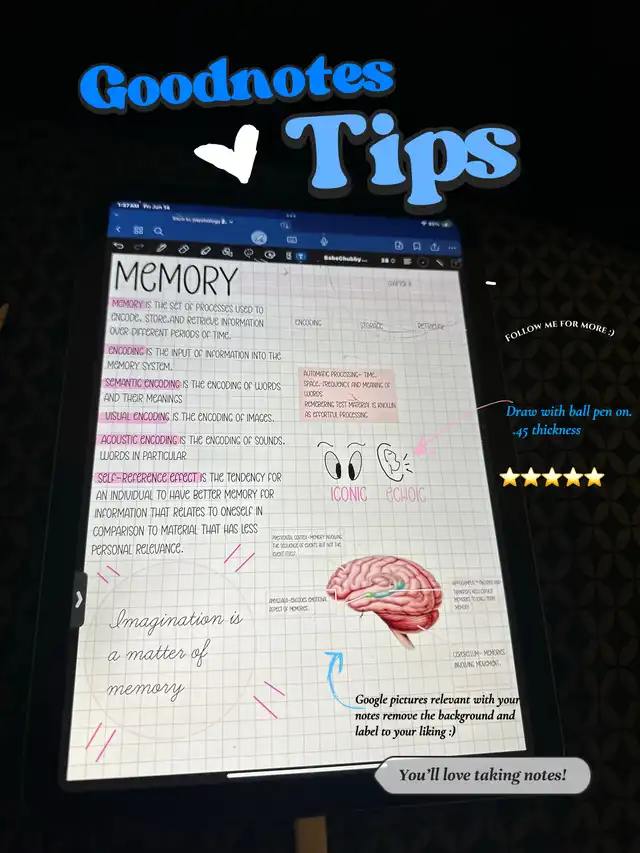 Goodnotes
Tips
1:37AM Fri Jun 14
Intro to psychology
BabeChubby...
MEMORY
CHAPTER 8
MEMORY IS THE SET OF PROCESSES USED TO
ENCODE, STORE, AND RETRIEVE INFORMATION
OVER DIFFERENT PERIODS OF TIME.
ENCODING IS THE INPUT OF INFORMATION INTO THE
MEMORY SYSTEM.
SEMANTIC ENCODING IS THE ENCODING OF WORDS
AND THEIR MEANINGS
VISUAL ENCODING IS THE ENCODING OF IMAGES.
ACOUSTIC ENCODING IS THE ENCODING OF SOUNDS.
WORDS IN PARTICULAR
SELF-REFERENCE EFFECT IS THE TENDENCY FOR
AN INDIVIDUAL TO HAVE BETTER MEMORY FOR
INFORMATION THAT RELATES TO ONESELF IN
COMPARISON TO MATERIAL THAT HAS LESS
PERSONAL RELEVANCE.
Imagination is
a matter of
memory
ENCODING STORAGE RETRIEVAL
AUTOMATIC PROCESSING- TIME,
SPACE, FREQUENCY AND MEANING OF
WORDS
REMEBERING TEST MATERIAL IS KNOWN
AS EFFORTFUL PROCESSING
ICONIC ECHOIC
PREFRONTAL CORTEX -MEMORY INVOLVING
THE SEQUENCE OF EVENTS BUT NOT THE
EVENT ITSELF
AMYGDALA-ENCODES EMOTIONAL
ASPECT OF MEMORIES.
MEMORIES TO LONG TERM
MEMORY
CEREBELLUM- MEMORIES
INVOLVING MOVEMENT.
FOLLOW ME FOR MORE ;)
Draw with ball pen on.
.45 thickness
Google pictures relevant with your
notes remove the background and
label to your liking :)
You'll love taking notes!